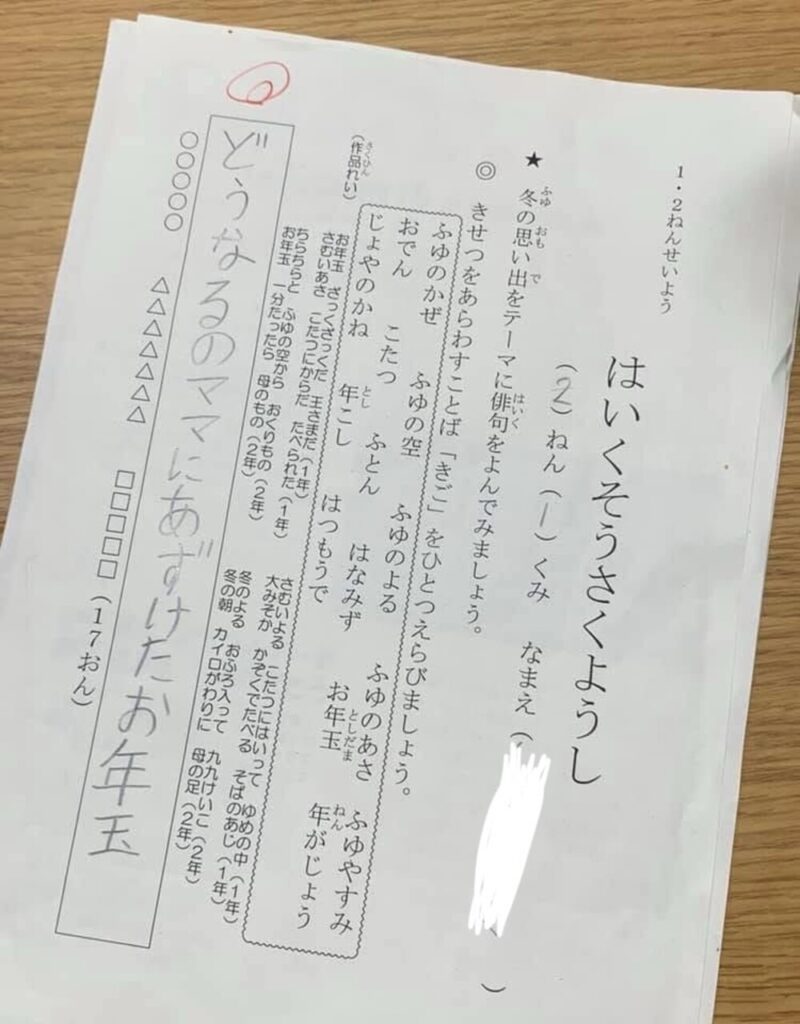 1・2ねんせいよう
はいくそうさくようし
(2)ねん(1)くみ なまえ( )
★ 冬の思い出をテーマに俳句をよんでみましょう。
ふゆ おも で はいく
◎ きせつをあらわすことば「きご」をひとつえらびましょう。
ふゆのかぜ ふゆの空 ふゆのよる ふゆのあさ ふゆやすみ
おでん こたつ ふとん はなみず お年玉 年がじょう
としだま ねん
じょやのかね 年こし はつもうで
とし
(作品れい)
さくひん
お年玉 ざっくざっくだ 王さまだ(1年)
さむいあさ こたつにからだ たべられた(1年)
ちらちらと ふゆの空から おくりもの(2年)
お年玉 一分たったら 母のもの(2年)
さむいよる こたつにはいって ゆめの中(1年)
大みそか かぞくでたべる そばのあじ(1年)
冬のよる おふろ入って 九九けいこ(2年)
冬の朝 カイロがわりに 母の足(2年)
どうなるのママにあずけたお年玉
○○○○○ △△△△△△△ □□□□□(17おん)